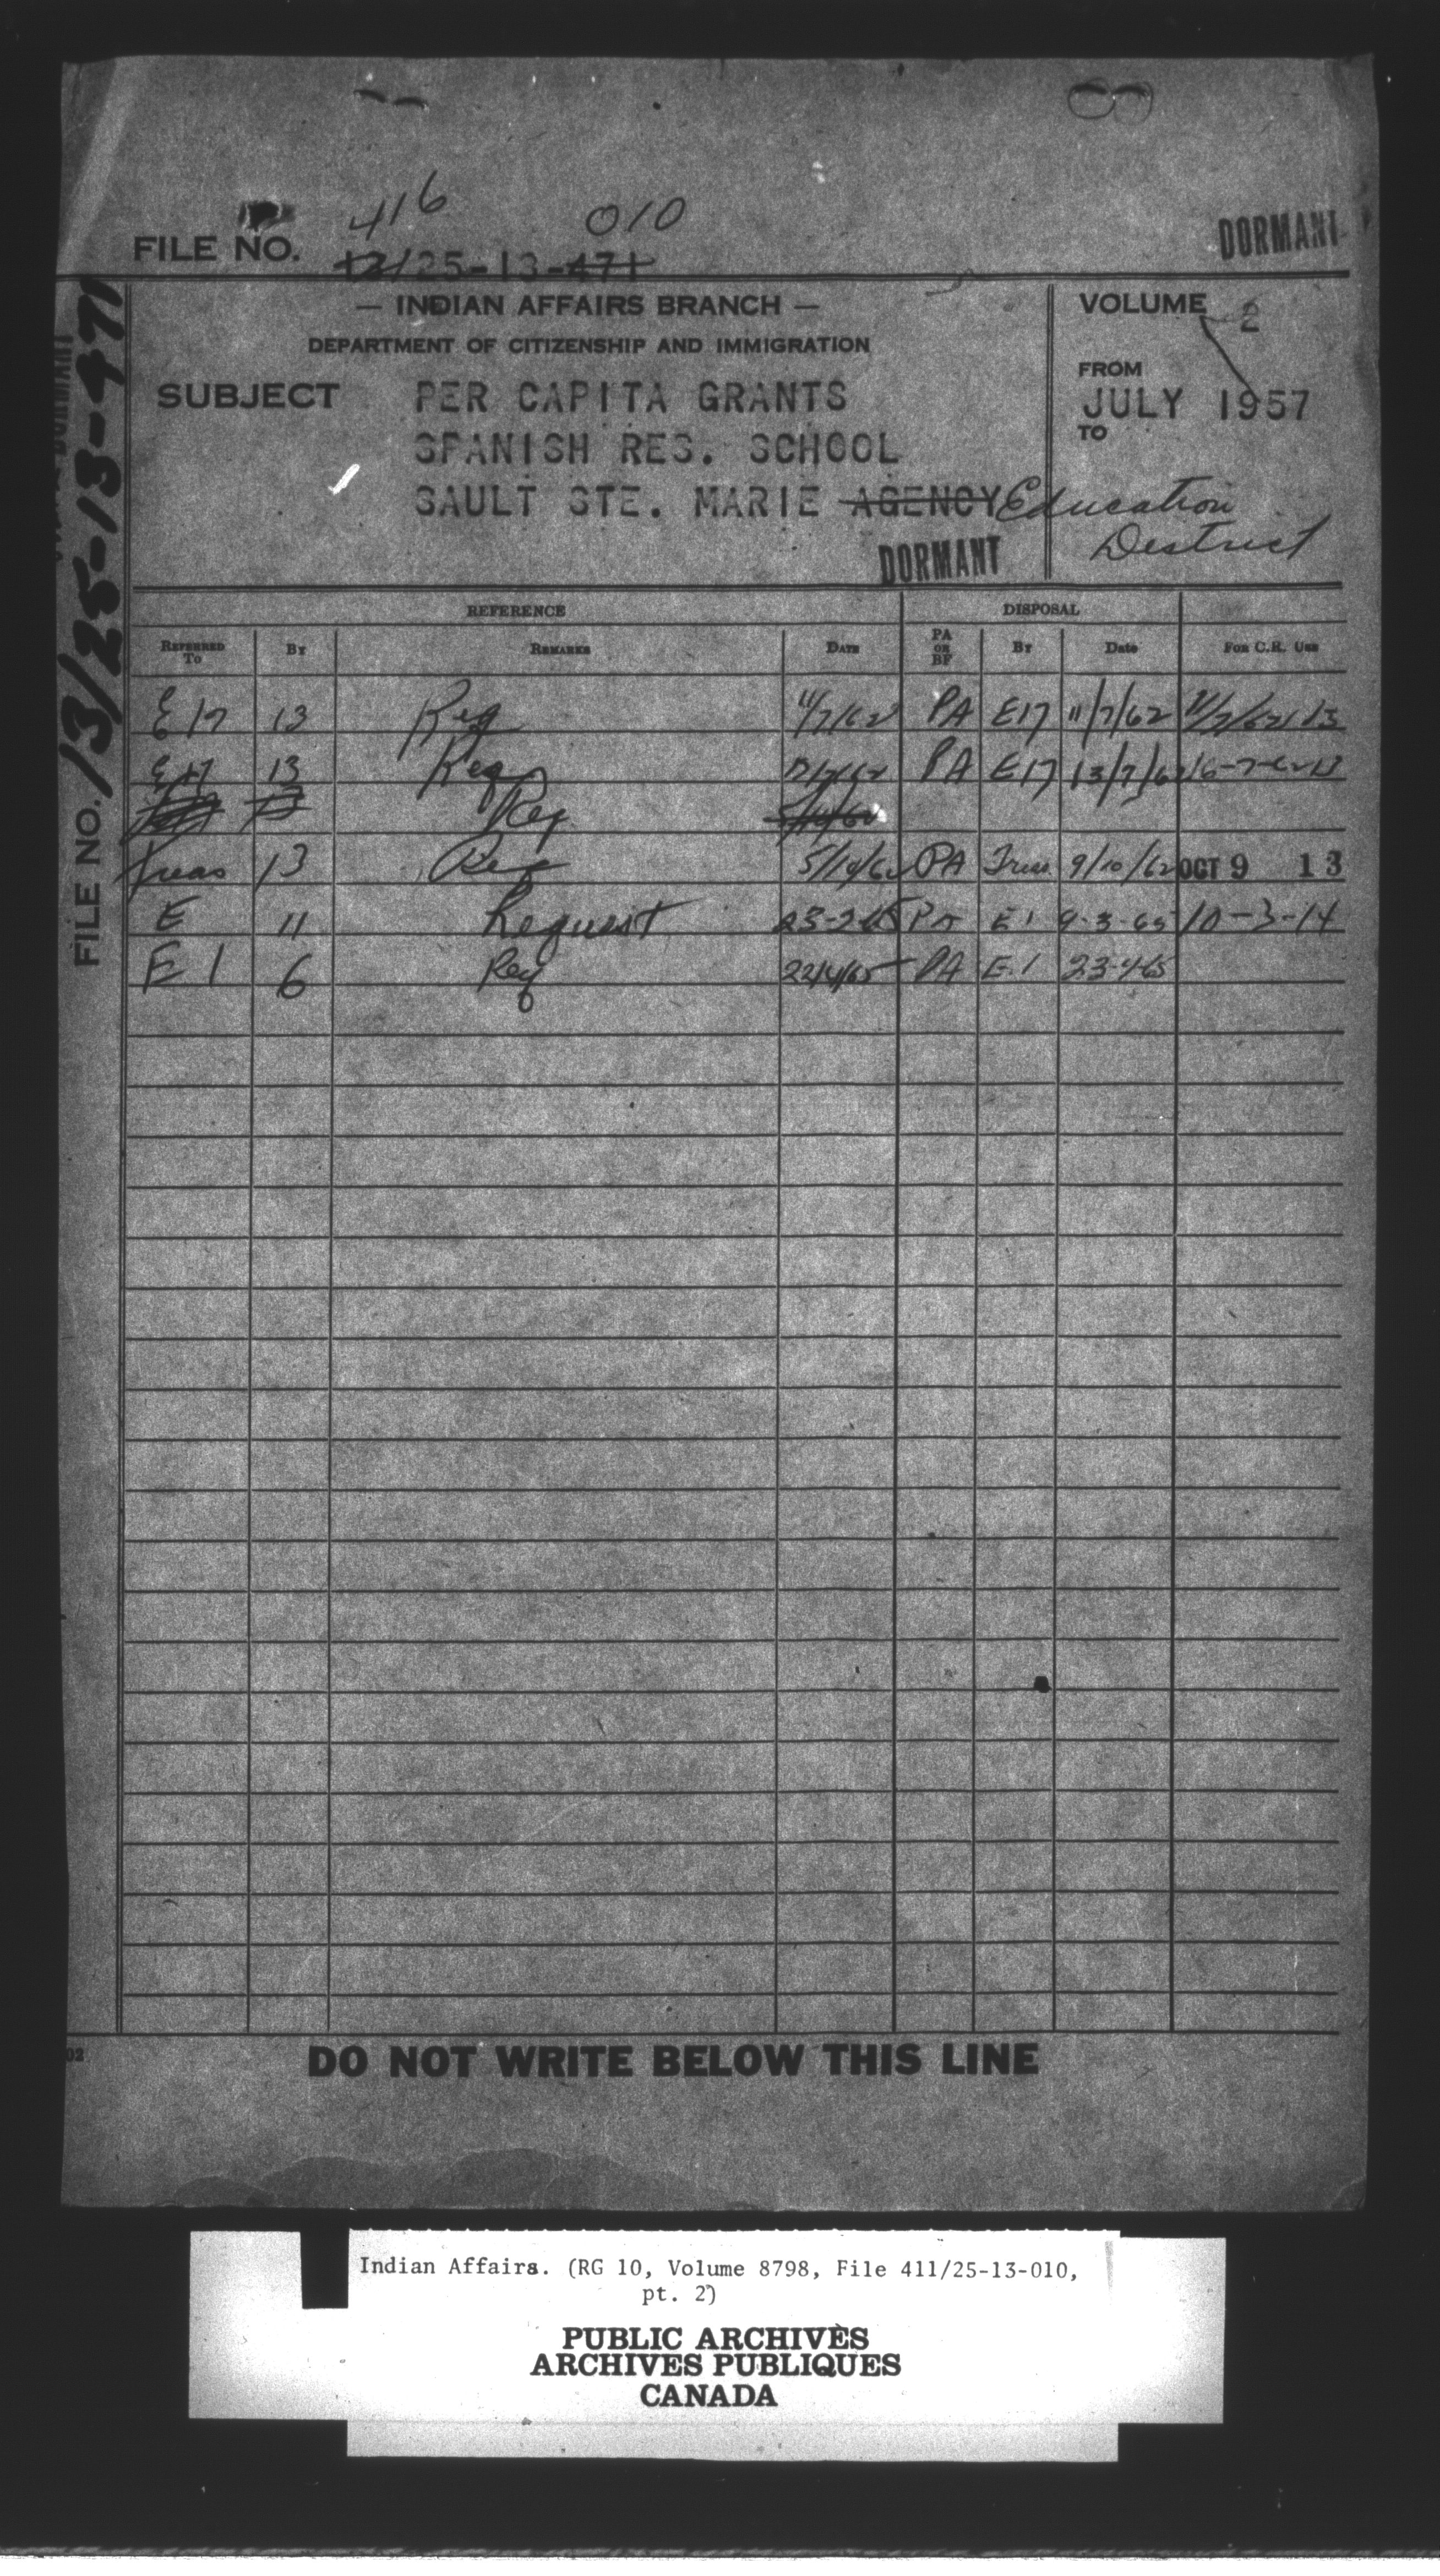 416 010
DORMANT
FILE NO. 13/25-13-471
— INDIAN AFFAIRS BRANCH —
DEPARTMENT OF CITIZENSHIP AND IMMIGRATION
VOLUME 2
FROM
JULY 1957
TO
SUBJECT PER CAPITA GRANTS
SPANISH RES. SCHOOL
SAULT STE. MARIE AGENCY Education
District
DORMANT
FILE NO. 13/25-13-471
REFERENCE DISPOSAL
REFERRED TO BY REMARKS DATE PA OR BF BY Date FOR C.R. USE
E17 13 Req 11/7/62 PA E17 11/7/62 13
E17 13 Req PA E17 13/7/62 16-7-62 13
Req 5/10/62
Treas 13 Req 5/10/62 PA Treas 9/10/62 OCT 9 13
E 11 Request 23-2-65 PA E1 9-3-65 10-3-14
E1 6 Req 22/4/65 PA E.1 23-4-65
02
DO NOT WRITE BELOW THIS LINE
Indian Affairs. (RG 10, Volume 8798, File 411/25-13-010,
pt. 2)
PUBLIC ARCHIVES
ARCHIVES PUBLIQUES
CANADA